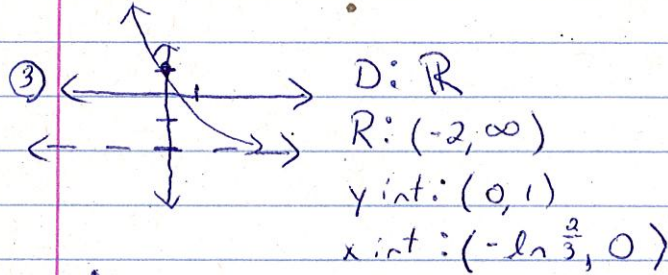 ③ D: ℝ
R: (-2, ∞)
y int: (0, 1)
x int: (-ln 2/3, 0)